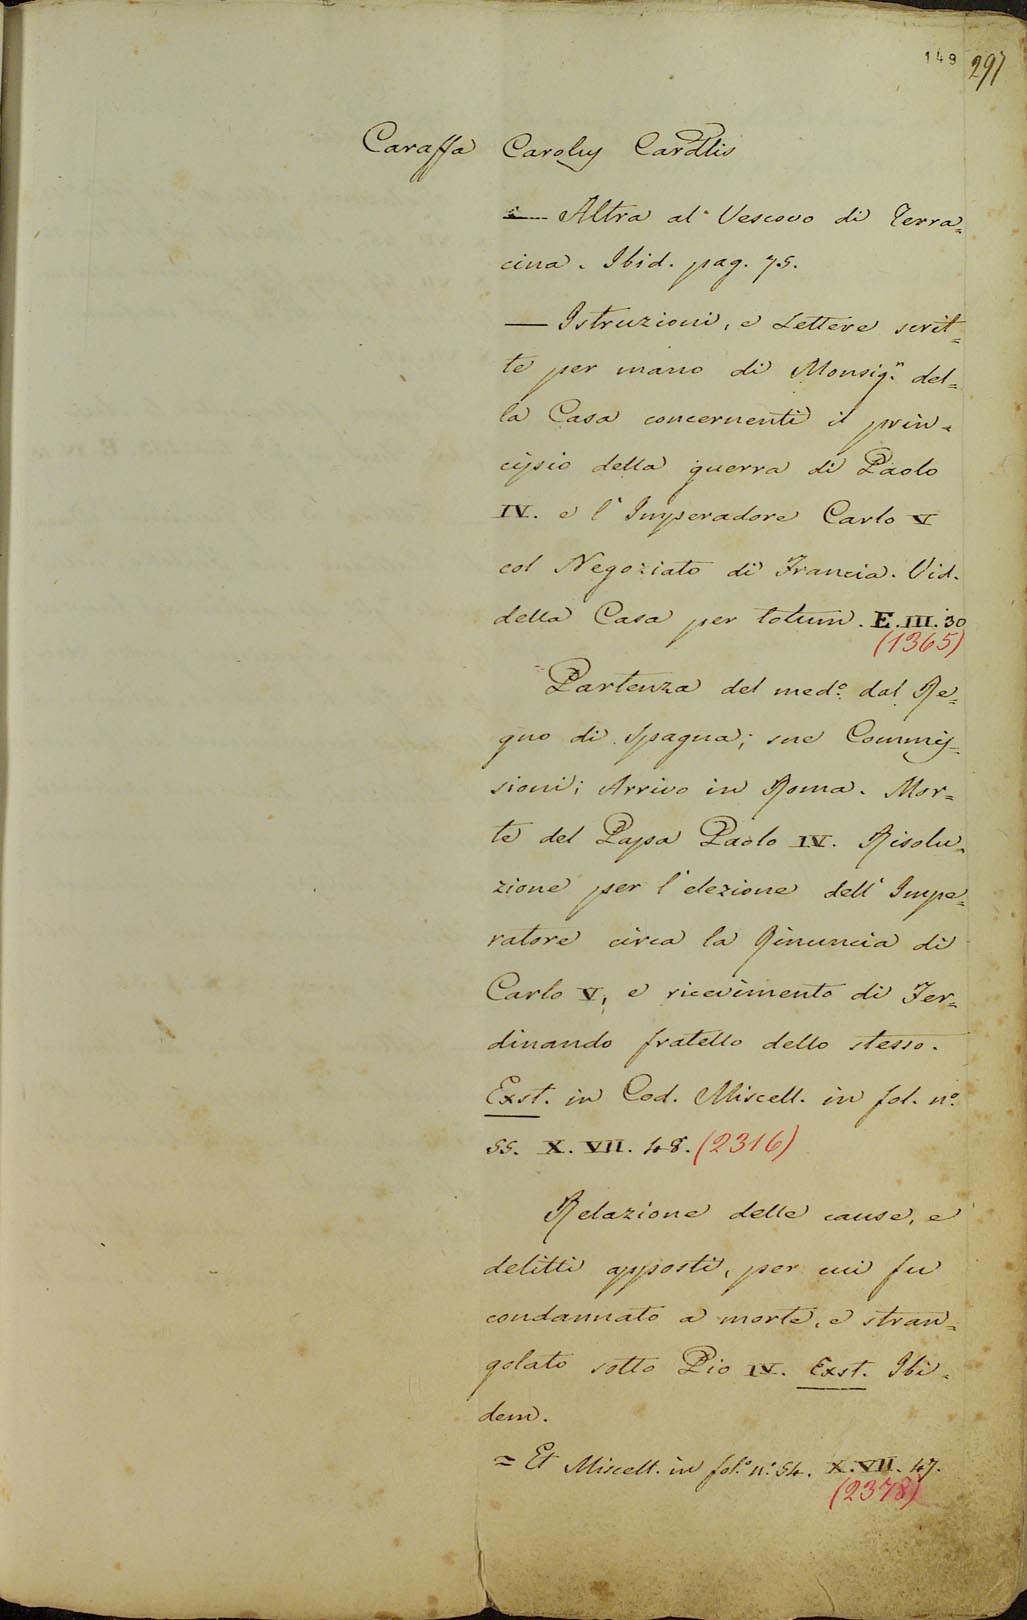 149 297
Caraffa Carolus Cardlis
— Altra al Vescovo di Terra=
cina. Ibid. pag. 75.
— Istruzioni, e Lettere scrit=
te per mano di Monsig.n del=
la Casa concernenti il prin=
cipio della guerra di Paolo
IV. e l'Imperadore Carlo V
col Negoziato di Francia. Vid.
della Casa per totum. E. III. 30
(1365)
Partenza del med.o dal Re=
gno di Spagna; sue Commis=
sioni; Arrivo in Roma. Mor=
te del Papa Paolo IV. Risolu=
zione per l'elezione dell'Impe=
ratore circa la Rinuncia di
Carlo V, e ricevimento di Fer=
dinando fratello dello stesso.
Exst. in Cod. Miscell. in fol. n.o
55. X. VII. 48. (2316)
Relazione delle cause, e
delitti apposti, per cui fu
condannato a morte, e stran=
golato sotto Pio IV. Exst. Ibi=
dem.
= Et Miscell. in fol.o n.o 54. X. VII. 47.
(2378)